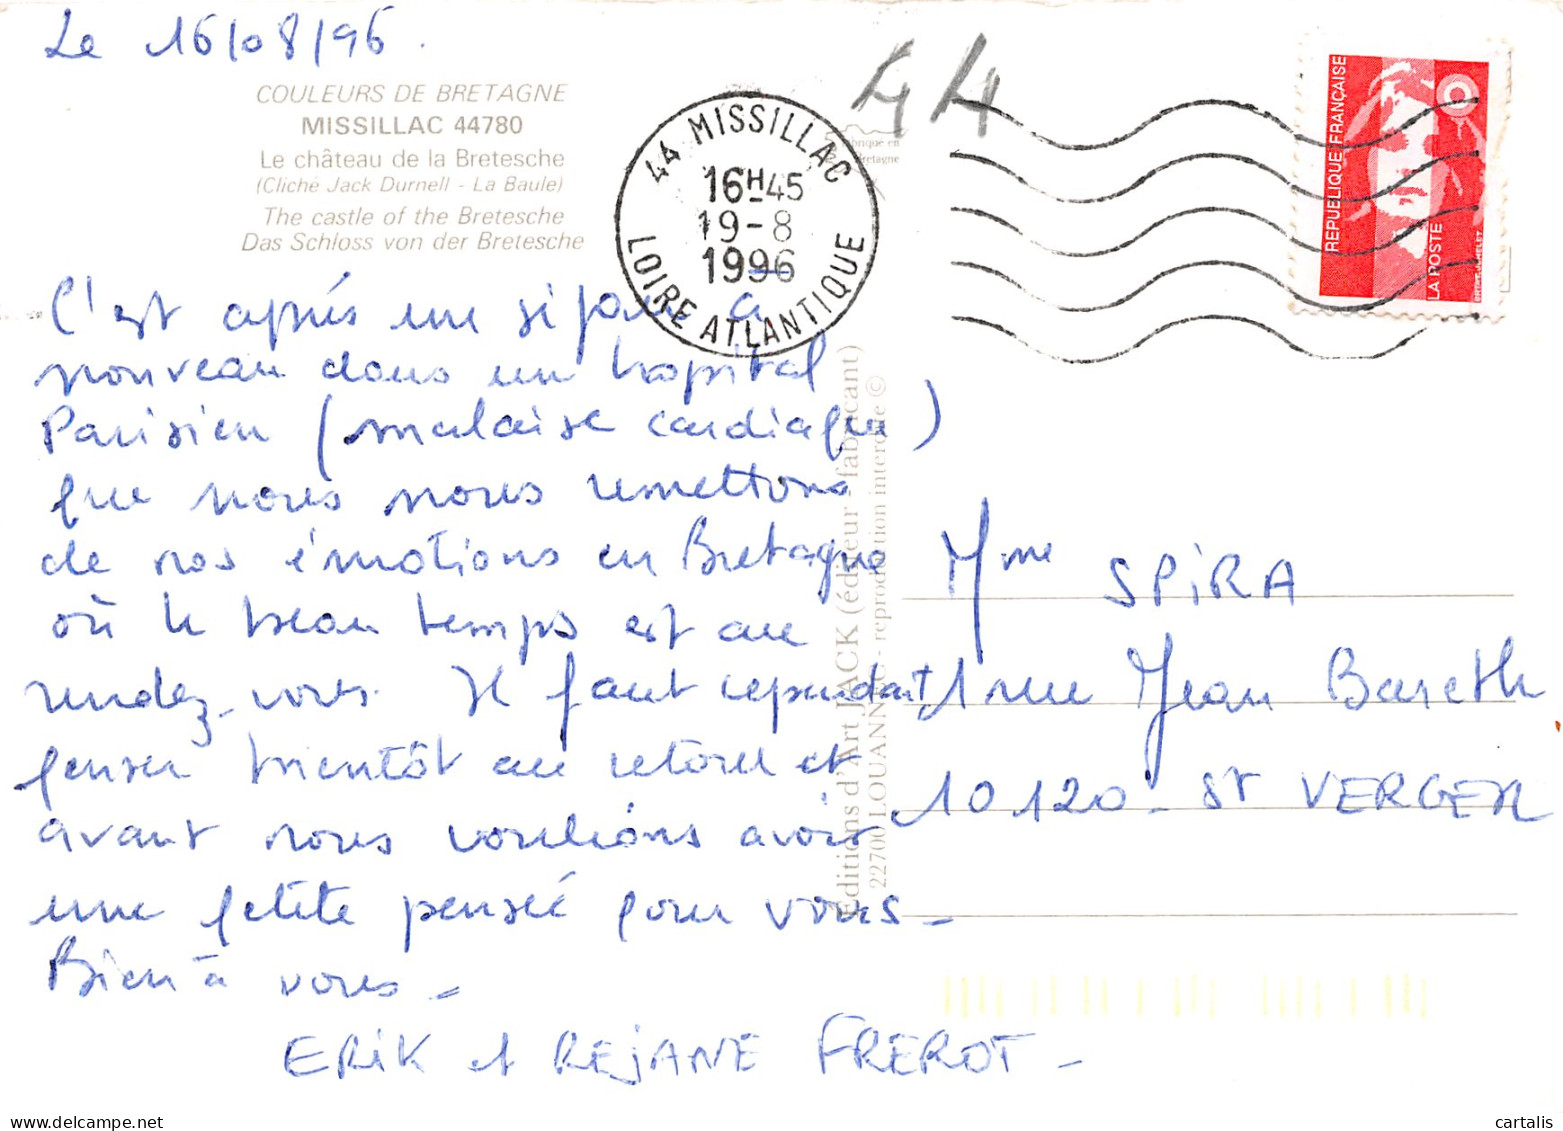 Le 16/08/96.
COULEURS DE BRETAGNE
MISSILLAC 44780
Le château de la Bretesche
(Cliché Jack Durnell - La Baule)
The castle of the Bretesche
Das Schloss von der Bretesche
44 MISSILLAC
16H45
19-8
1996
LOIRE ATLANTIQUE
44
brique en
Bretagne
REPUBLIQUE FRANÇAISE
LA POSTE
C'est après un séjour à
nouveau dans un hopital
Parisien (malaise cardiaque)
que nous nous remettons
de nos émotions en Bretagne
où le beau temps est au
rendez-vous. Il faut cependant
penser bientôt au retour et
avant nous voulions avoir
une petite pensée pour vous -
Bien à vous -
ERIK et REJANE FREROT -
Editions d'Art JACK (éditeur - fabricant)
22700 LOUANNEC - reproduction interdite ©
Mme SPIRA
1 rue Jean Bareth
10120 - St VERGER
cartalis